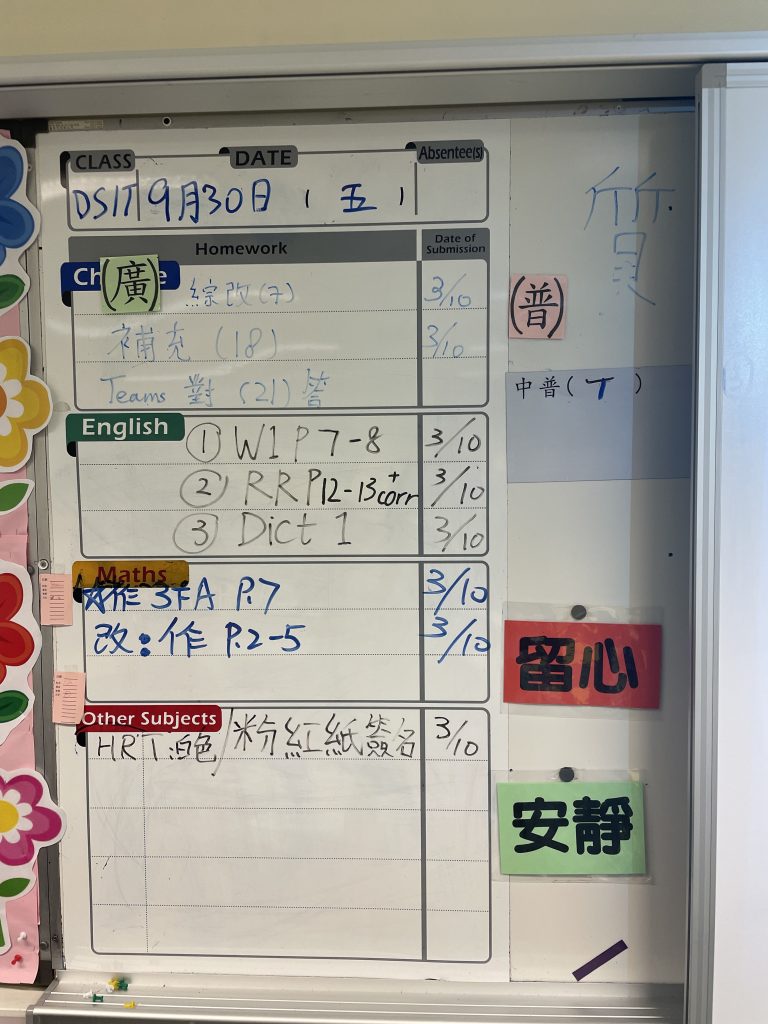 CLASS DATE Absentee(s)
DS1T 9月30日 (五)
Homework Date of Submission
Ch e (廣) 綜改(7) 3/10
補充 (18) 3/10
Teams 對 (21) 答
English
① W1 P7-8 3/10
② RR P12-13 + corr 3/10
③ Dict 1 3/10
Maths
作 3FA P.7 3/10
改:作 P.2-5 3/10
Other Subjects
HRT: / 粉紅紙簽名 3/10
質
(普)
中普( T )
留心
安靜